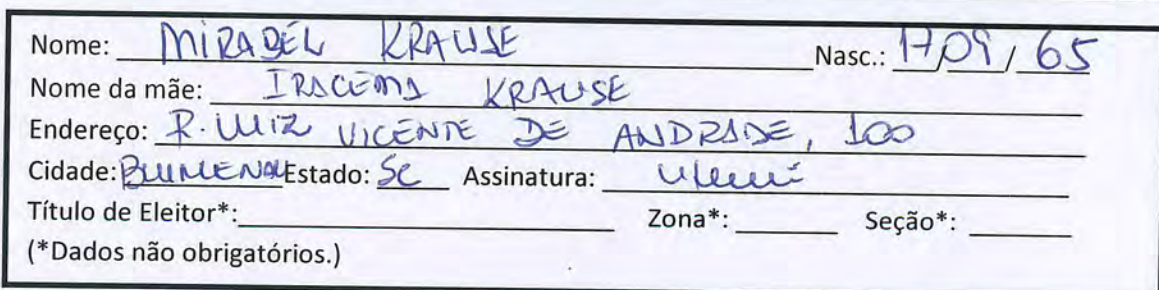 Nome: MIRABEL KRAUSE Nasc.: 17/09/65
Nome da mãe: IRACEMA KRAUSE
Endereço: R. LUIZ VICENTE DE ANDRADE, 100
Cidade: BLUMENAU Estado: SC Assinatura:
Título de Eleitor*: Zona*: Seção*:
(*Dados não obrigatórios.)